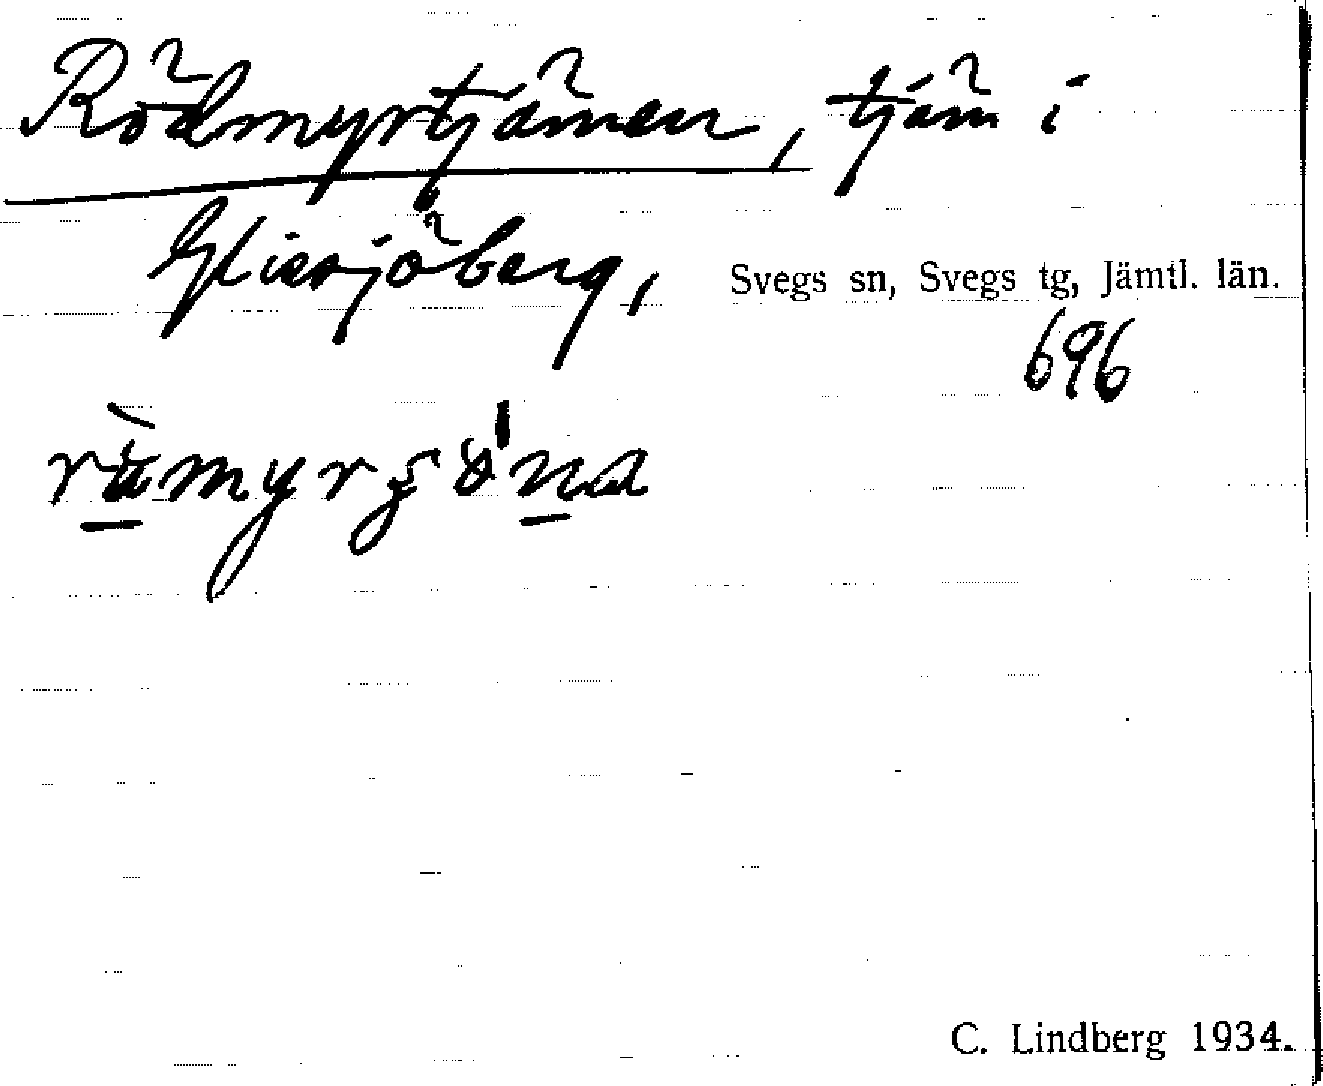 Rödmyrtjärnen, tjärn i
Glissjöberg, Svegs sn, Svegs tg, Jämtl. län.
696
C. Lindberg 1934.